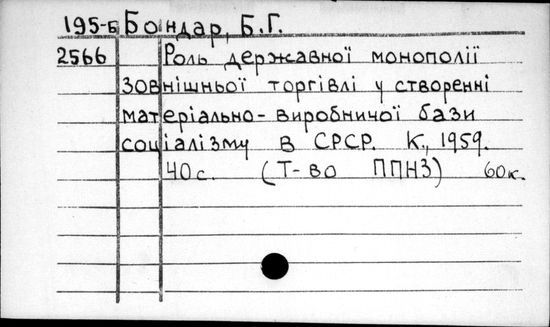 195-Б Бондар, Б.Г.
2566 Роль державної монополії
зовнішньої торгівлі у створенні
матеріально-виробничої бази
соціалізму в СРСР. К., 1959.
40с. (Т-во ППНЗ) 60к.